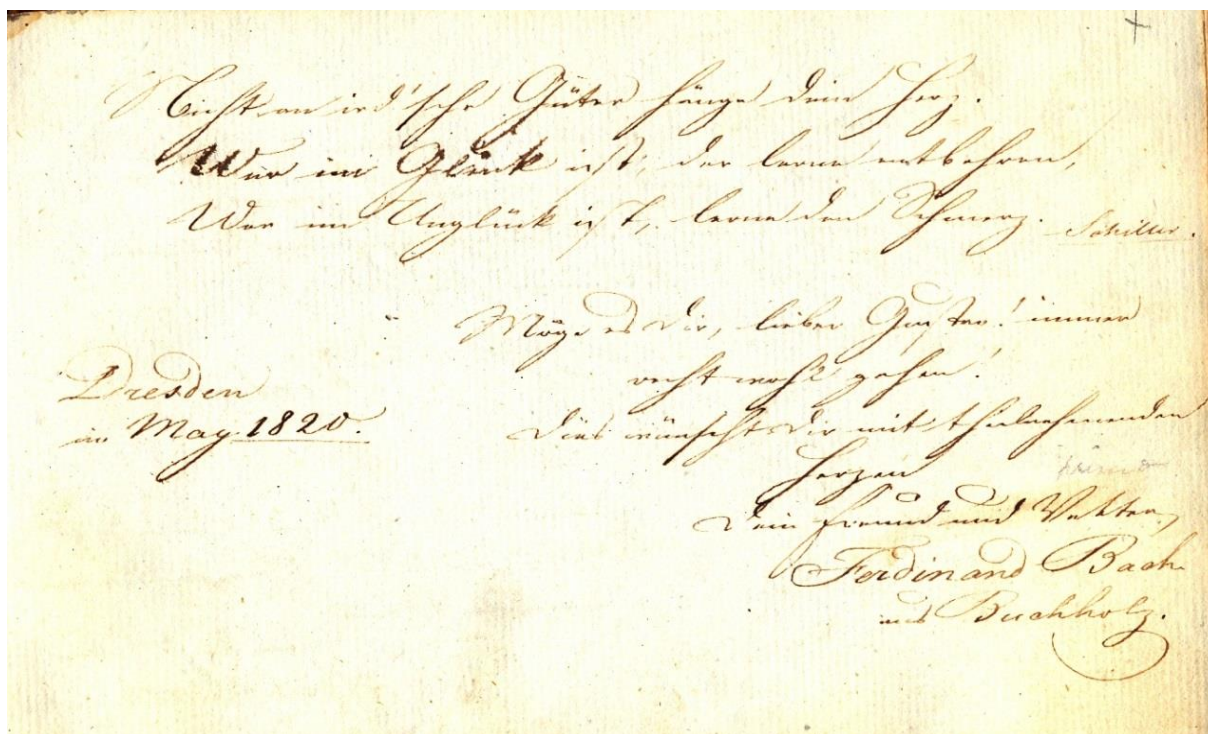 Nicht an ird'sche Güter hänge dein Herz.
Wer im Glück ist, der lerne entbehren,
Wer im Unglück ist, lerne den Schmerz. Schiller.
Möge es Dir, lieber Gustav! immer
recht wohl gehen.
Dresden
im May 1820.
Dies wünscht Dir mit theilnehmenden
Herzen
Dein Freund und Vetter
Ferdinand Bach
aus Buchholz.